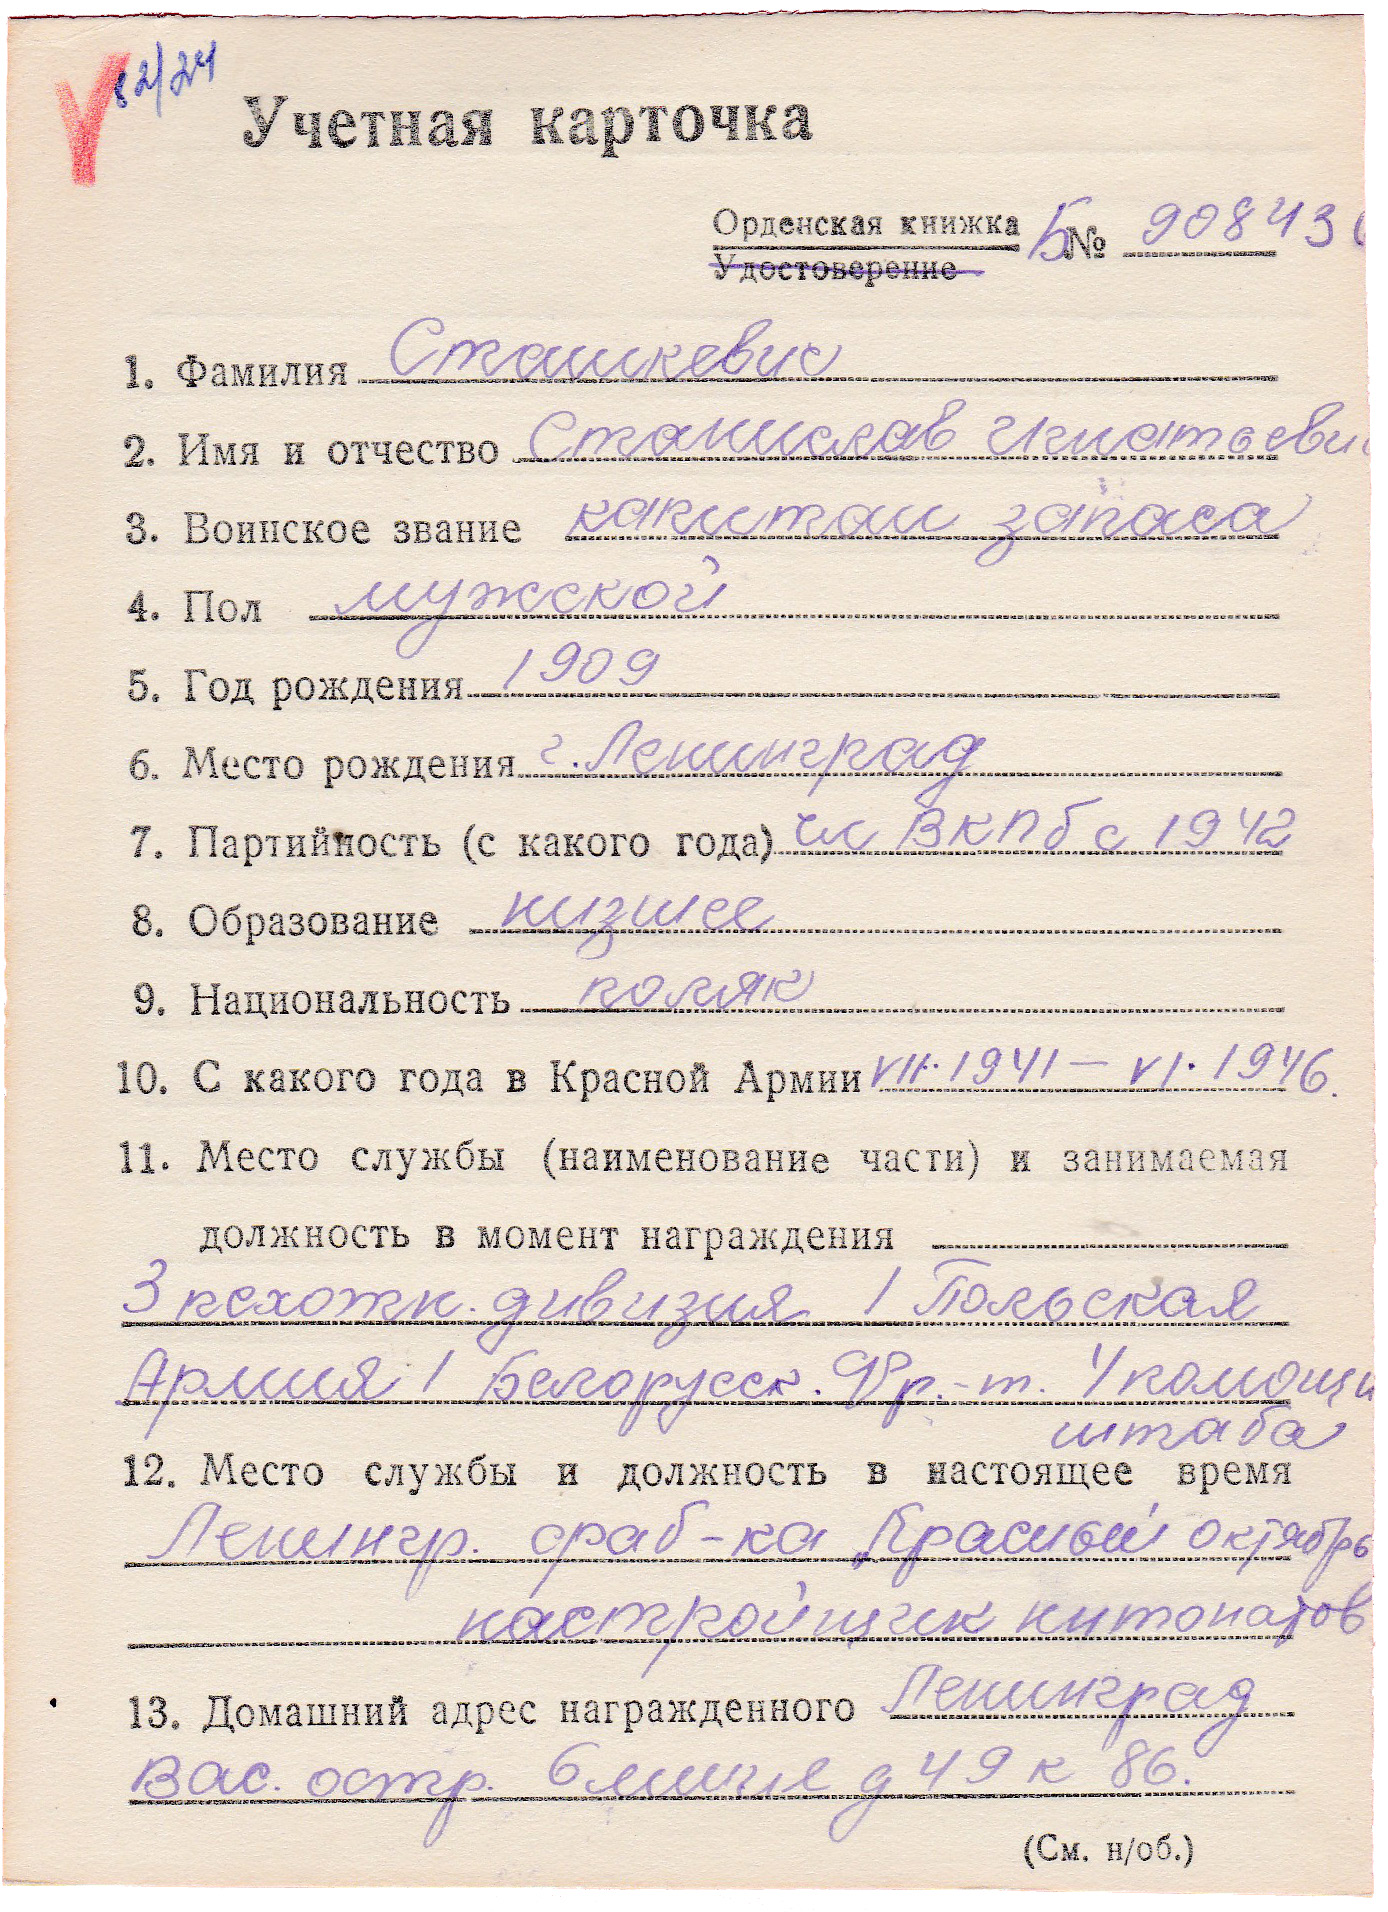 82/24
Учетная карточка
Орденская книжка Б№ 908430
Удостоверение
1. Фамилия Сташкевич
2. Имя и отчество Станислав Игнатьевич
3. Воинское звание капитан запаса
4. Пол мужской
5. Год рождения 1909
6. Место рождения г. Ленинград
7. Партийность (с какого года) чл ВКПб с 1942
8. Образование низшее
9. Национальность поляк
10. С какого года в Красной Армии VII.1941 — VI.1946.
11. Место службы (наименование части) и занимаемая
должность в момент награждения
3 пехотн. дивизия 1 Польская
Армия 1 Белорусск. Фр.-т. помощн
штаба
12. Место службы и должность в настоящее время
Ленингр. фаб-ка „Красный октябрь
настройщик
13. Домашний адрес награжденного Ленинград
Вас. остр. 6 линия д 49 к 86.
(См. н/об.)